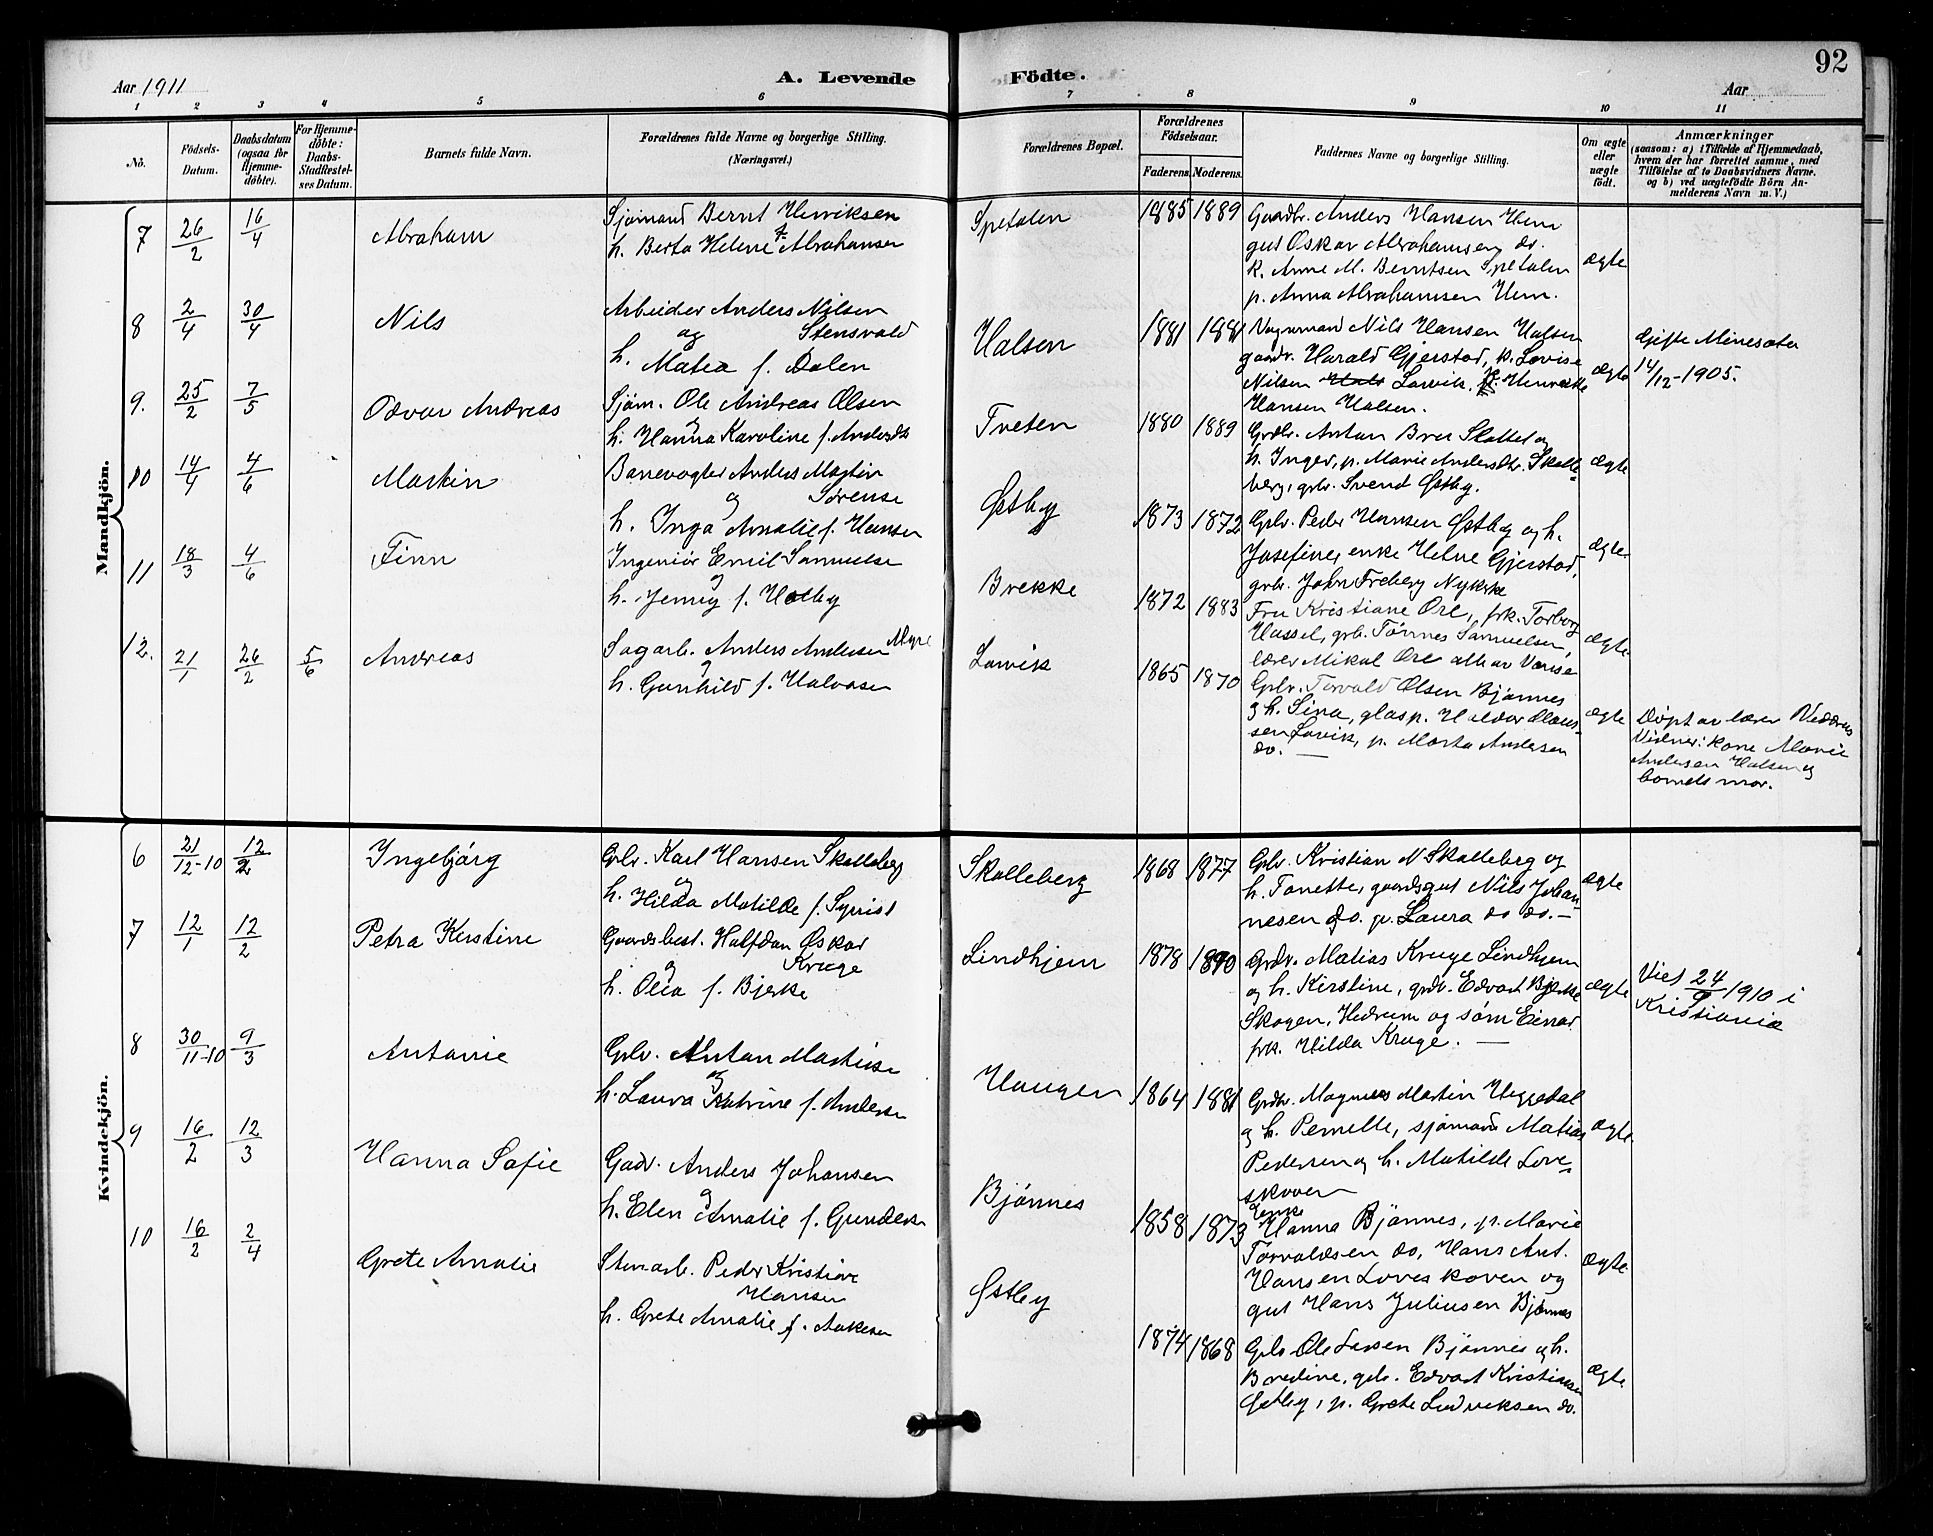 92
Aar 1911
A. Levende Födte.
Aar
1 2 3 4 5 6 7 8 9 10 11
No.
Födsels-Datum.
Daabsdatum (ogsaa for Hjemme-döbte).
For Hjemme-döbte: Daabs-Stadfæstel-ses Datum.
Barnets fulde Navn.
Forældrenes fulde Navne og borgerlige Stilling. (Næringsvei.)
Forældrenes Bopæl.
Forældrenes Födselsaar.
Faderens Moderens.
Faddernes Navne og borgerlige Stilling.
Om ægte eller uægte födt.
Anmærkninger
(saasom: a) i Tilfælde af Hjemmedaab, hvem der har forrettet samme, med Tilföielse af to Daabsvidners Navne, og b) ved uægtefödte Börn Anmelderens Navn m. V.)
Mandkjön.
7 26/2 16/4 Abraham
Sjømand Bernt Henriksen
h. Berta Helene f. Abrahamsen
Spetalen 1885 1889
Gaardbr. Anders Hansen Hem
gut Oskar Abrahamsen do.
k. Anne M. Berntsen Spetalen
p. Anna Abrahamsen Hem.
ægte
8 2/4 30/4 Nils
Arbeider Anders Nilsen
og Stensvald
h. Matea f. Dalen
Halsen 1881 1881
Vognmand Nils Hansen Halsen
gaardbr. Harald Gjerstad, p. Lovise
Nilsen Larvik, p. Henrikke
Hansen Halsen.
ægte
Gifte Minesota
14/12-1905.
9. 25/2 7/5 Odvar Andreas
Sjøm. Ole Andreas Olsen
og
h. Hanna Karoline f. Andersdt.
Tveten 1880 1889
Grdbr. Anton Bver Skalleb og
h. Inger, p. Marie Andersdtr. Skalle-
berg, grbr. Svend Østby.
ægte
10 14/4 4/6 Martin
Banevogter Anders Martin
og Sørense
h. Inga Amalie f. Hansen
Østby 1873 1872
Gbr. Peder Hansen Østby og h.
Josefine, enke Helene Gjerstad,
grbr. John Freberg Nykirke
ægte
11 18/3 4/6 Finn
Ingeniør Emil Samuelse
og
h. Jenny f. Holby
Brekke 1872 1883
Fru Kristiane Ore, frk. Torborg
Hassel, grb. Tønnes Samuelsen,
lærer Mikal Ore alle av Vanse
ægte
12. 21/1 26/2 5/6 Andreas
Sagarb. Anders Andersen Myre
og
h. Gunhild f. Halvorsen
Larvik 1865 1870
Gbr. Torvald Olsen Bjønnes
og h. Sina, glasp. Haldor Claus-
sen Larvik, p. Marta Andersen
do.
ægte
Døpt av lærer
Vidner: kone Marie
Andersen Halsen og
barnets mor.
Kvindekjön.
6 21/12-10 12/2 Ingebjørg
Gbr. Karl Hansen Skalleberg
og
h. Hilda Matilde f. Syrist
Skalleberg 1868 1877
Gbr. Kristian N Skalleberg og
h. Tonette, gaardsgut Nils Johan-
nesen do. p. Laura do do.
ægte
7 12/1 12/2 Petra Kerstine
Gaardsbest. Halfdan Oskar
og Kruge
h. Olea f. Bjerke
Lindhjem 1878 1890
Grdbr. Matias Kruge Lindhjem
og h. Kirstine, grdbr. Edvart Bjerke
Skogen, Hedrum og søn Einar
frk. Hilda Kruge.
ægte
Viet 24/9 1910 i
Kristiania
8 30/11-10 9/3 Antonie
Gbr. Anton Martinse
og
h. Laura Katrine f. Anderse
Haugen 1864 1881
Grdbr. Magnus Martin Heggedal
og h. Pernelle, sjømand Matias
Pedersen og h. Matilde Love-
skoven
ægte
9 16/2 12/3 Hanna Sofie
Gadr. Anders Johansen
og
h. Elen Amalie f. Gunderse
Bjønnes 1858 1873
Enke
Hanna Bjønnes, p. Marie
Torvaldsen do, Hans Ant.
Hansen Loveskoven og
gut Hans Juliussen Bjønnes
ægte
10 16/2 2/4 Grete Amalie
Stenarb. Peder Kristian
Hansen
h. Grete Amalie f. Aakesen
Østby 1874 1868
Gbr Ole Larsen Bjønnes og h.
Bredine, gbr. Edvart Kristiansen
Østby, p. Grete Ludviksen do.
ægte